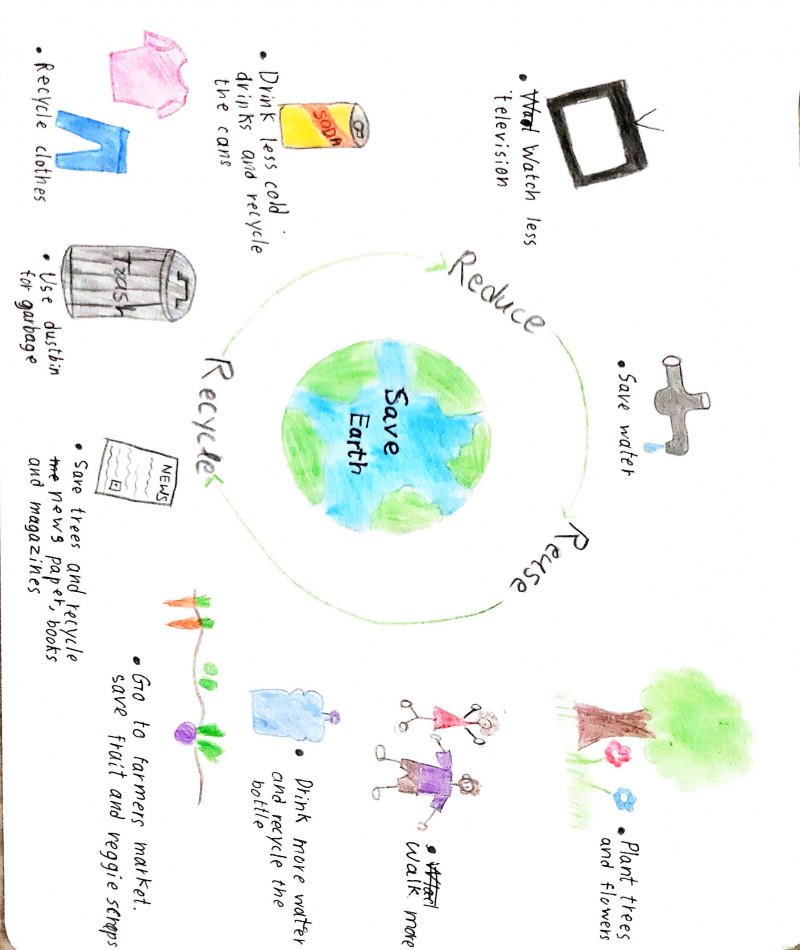 • Watch less
television
• Save water
• Plant trees
and flowers
Reduce
Reuse
Recycle
Save
Earth
• Walk more
SODA
• Drink less cold
drinks and recycle
the cans
• Drink more water
and recycle the
bottle
• Recycle clothes
Trash
• Use dustbin
for garbage
NEWS
• Save trees and recycle
news paper, books
and magazines
• Go to farmers market.
save fruit and veggie scraps